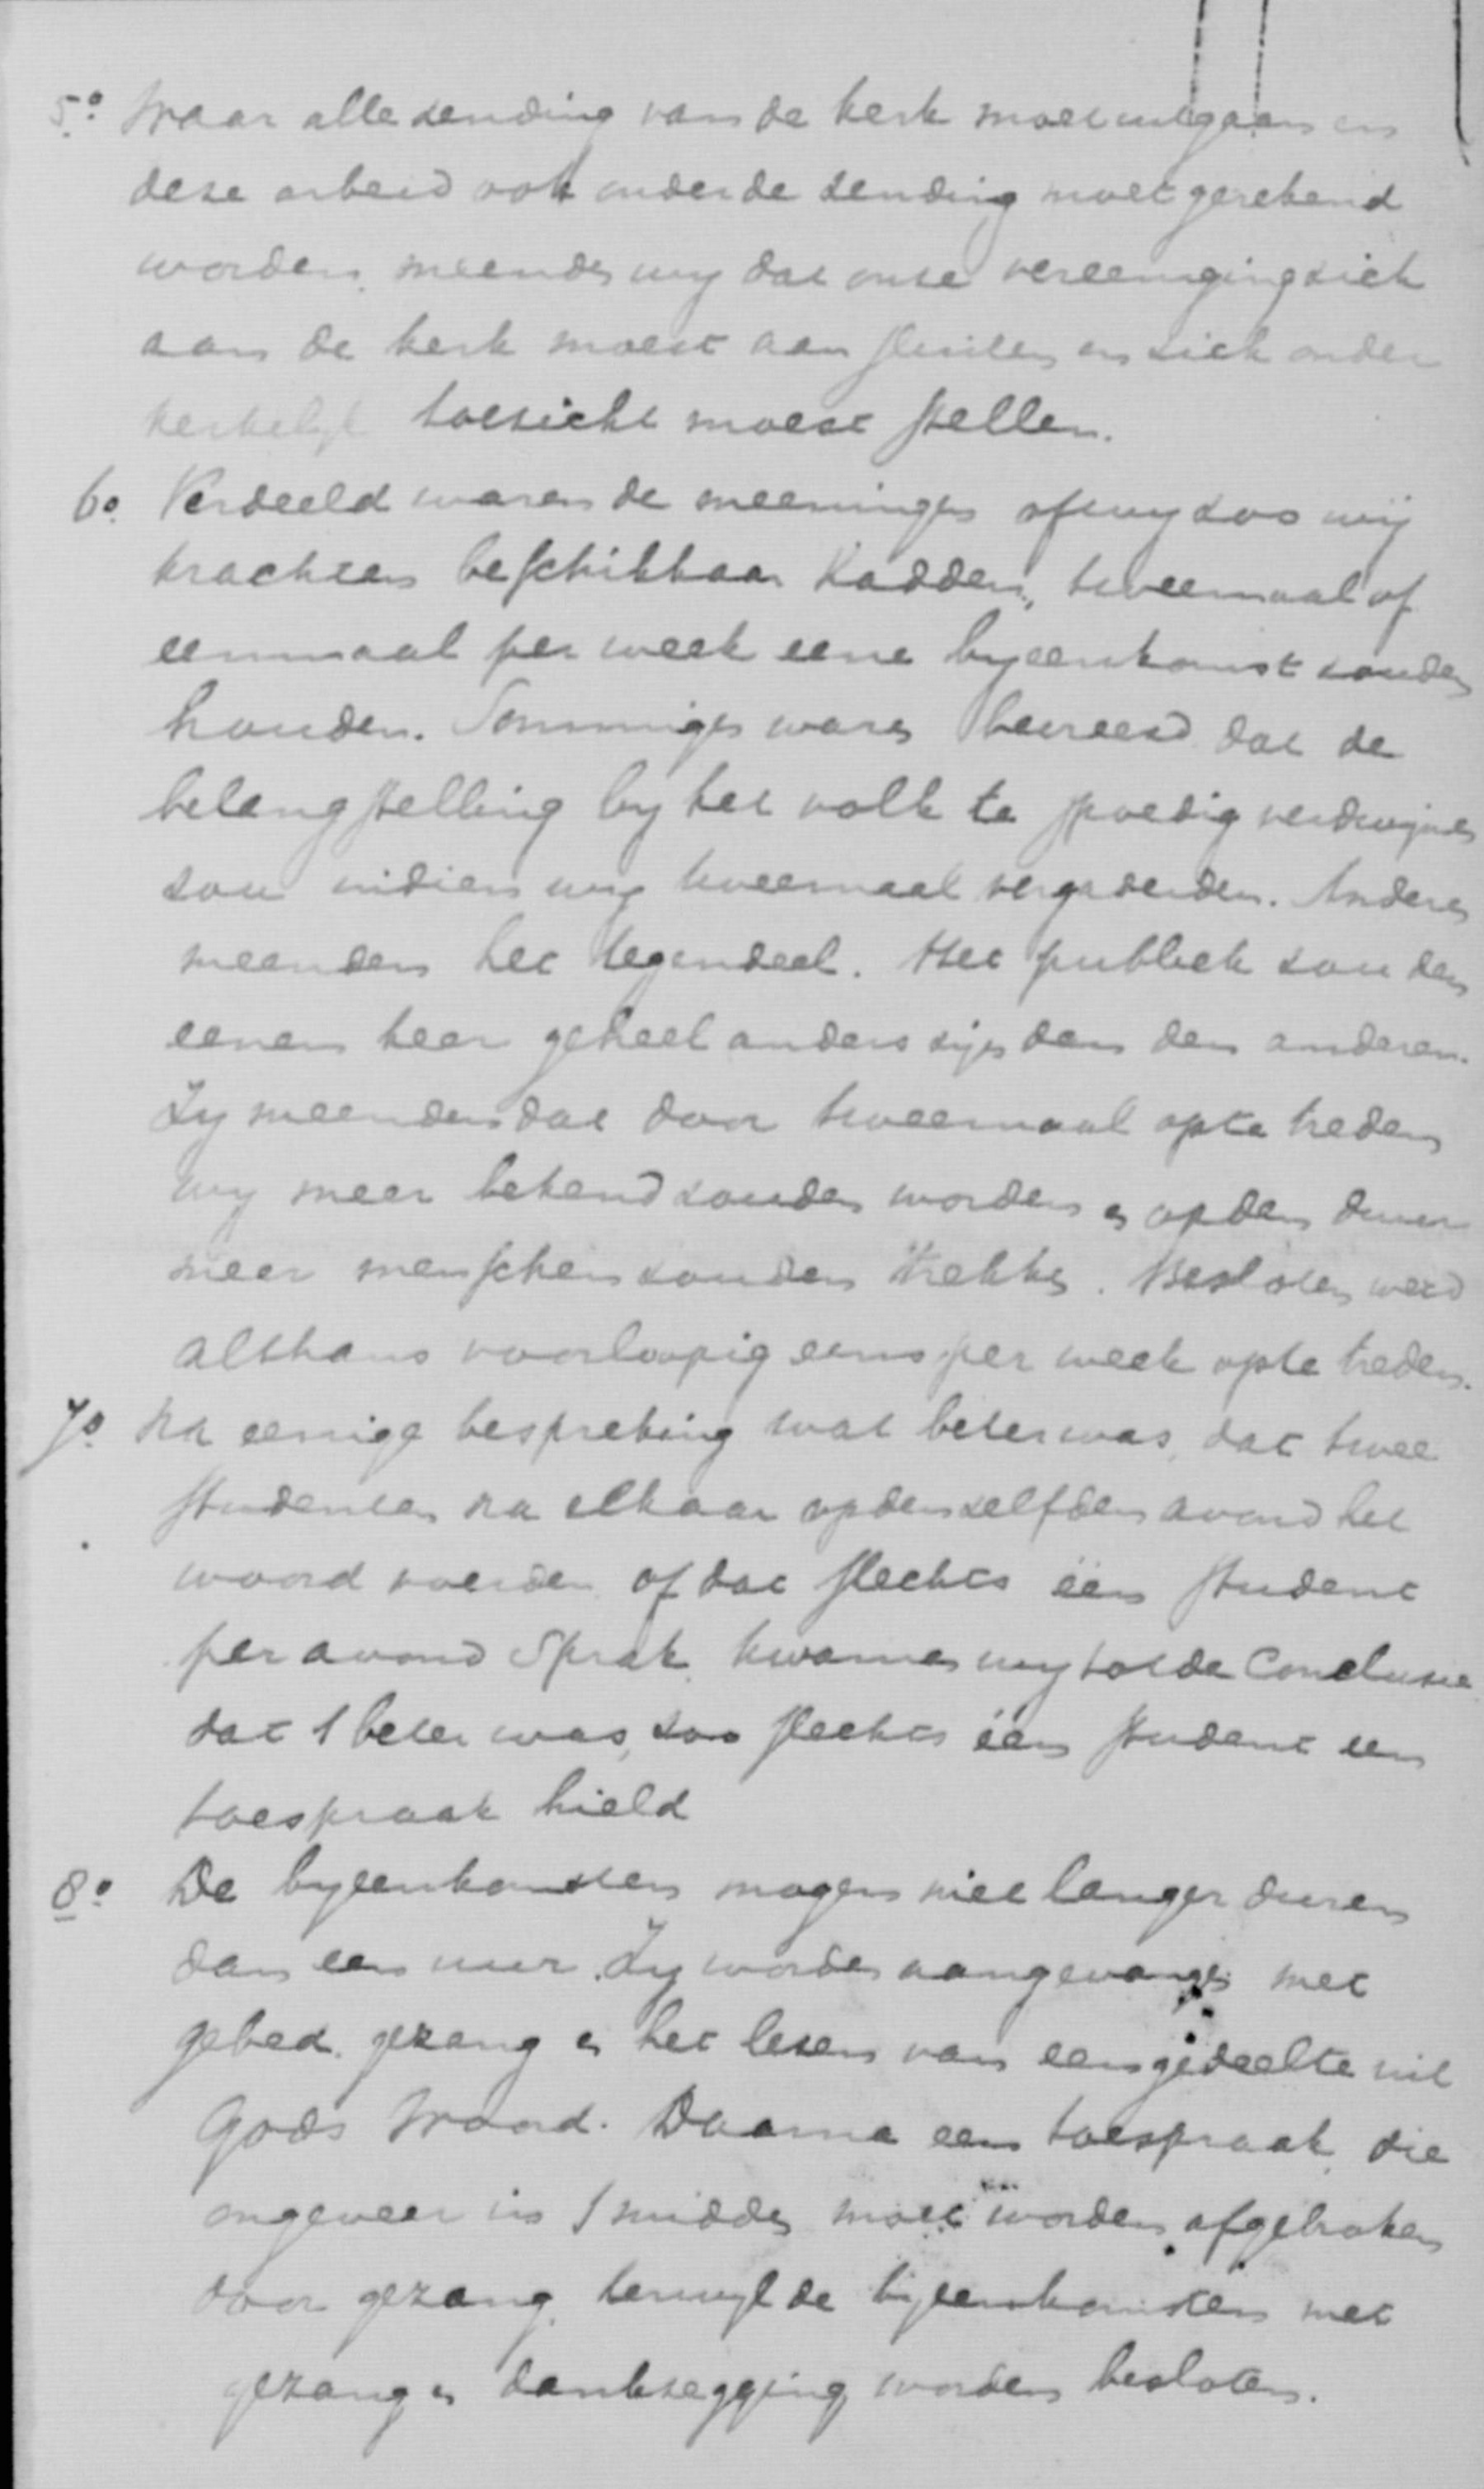 5o. Waar alle zending van de kerk moet uitgaan en
deze arbeid ook onder de zending moet gerekend
worden, meenden wy dat onze vereeniging zich
aan de kerk moest aansluiten en zich onder
kerkelyk toezicht moest stellen.
6o. Verdeeld waren de meeningen of wy zoo wij
krachten beschikbaar hadden, tweemaal of
eenmaal per week eene byeenkomst zouden
houden. Sommigen waren bevreesd dat de
belangstelling by het volk te spoedig verdwijnen
zou indien wy tweemaal vergaderden. Anderen
meenden het tegendeel. Het publiek zou den
eenen keer geheel anders zijn dan den anderen.
Zy meenden dat door tweemaal op te treden
wy meer bekend zouden worden en op den duur
meer menschen zouden trekken. Besloten werd
althans voorloopig eens per week op te treden.
7o. Na eenige bespreking wat beter was, dat twee
studenten na elkaar op denzelfden avond het
woord voerden of dat slechts één student
per avond sprak, kwamen wy tot de conclusie
dat 't beter was, zoo slechts één student een
toespraak hield
8o. De byeenkomsten mogen niet langer duren
dan een uur. Zy worden aangevangen met
gebed, gezang en het lezen van een gedeelte uit
Gods Woord. Daarna een toespraak, die
ongeveer in 't midden moet worden afgebroken
door gezang, terwyl de bijeenkomsten met
gezang en dankzegging worden besloten.